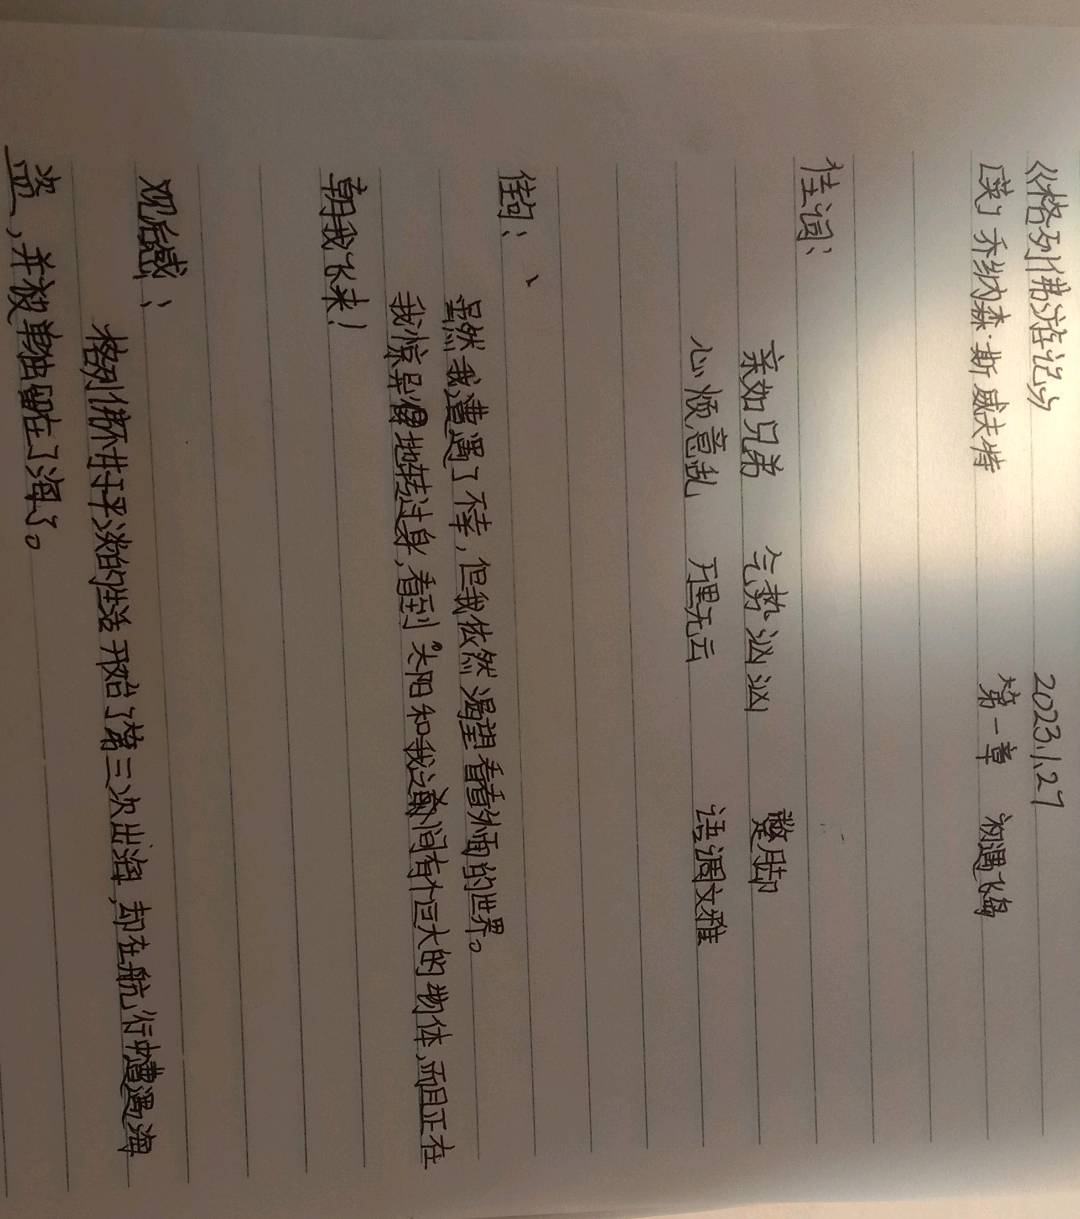 《格列佛游记》 2023.1.27
[英]乔纳森·斯威夫特 第一章 初遇飞岛
佳词：
亲如兄弟 气势汹汹 蹩脚
心烦意乱 万里无云 语调文雅
佳句：、
虽然我遭遇了不幸，但我依然渴望看看外面的世界。
我惊异地转过身，看到太阳和我之间有个巨大的物体，而且正在
朝我飞来！
观后感：
格列佛不甘于平淡的生活开始了第三次出海，却在航行中遭遇海
盗，并被单独留在了海了。